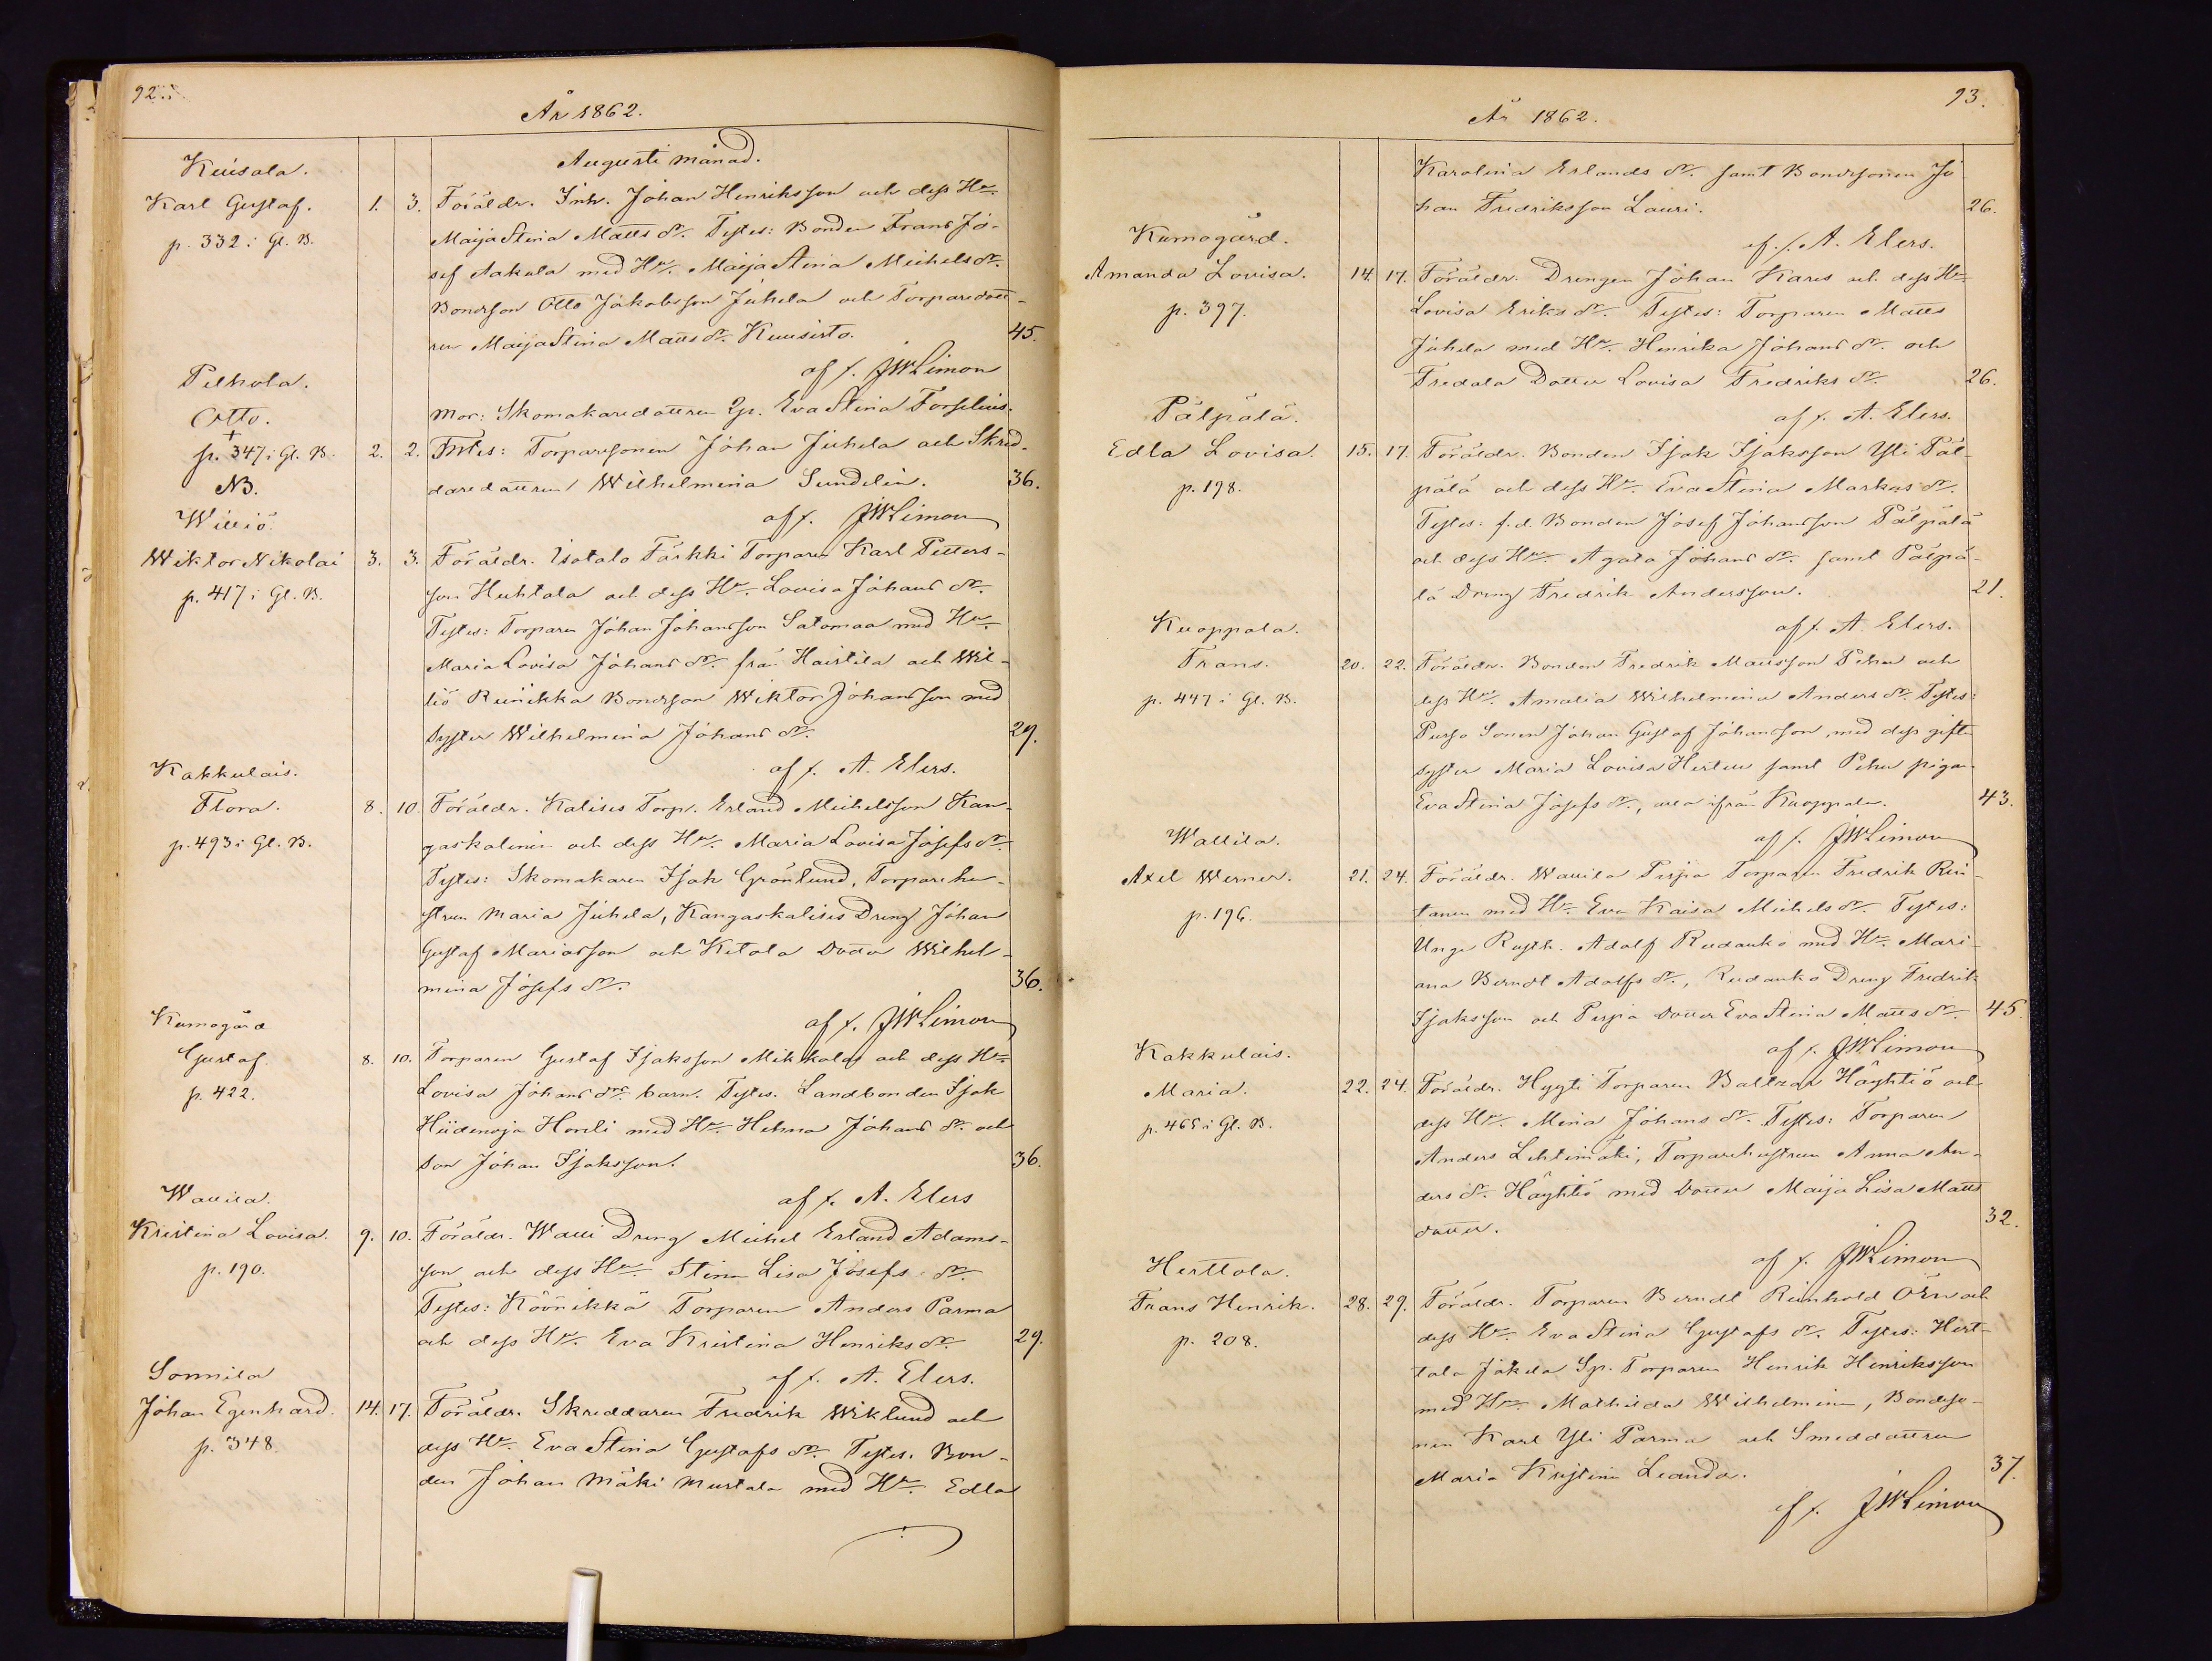 92.
År 1862.
Augusti månad.
Kuisala.
Karl Gustaf. 1. 3. Föräldr. Inh. Johan Henriksson och dess Hu.
p. 332 i Gl. B. Maija Stina Matts dr. Testes: Bonden Frans Jo-
sef Aakula med Hu. Maija Stina Michels dr.
Bondson Otto Jakobsson Juhela och Torparedott-
ren Maija Stina Matts dr. Kuusisto. 45.
af f. JWLimon
Pelhola.
Otto. Mor: Skomakaredottren Qp. Eva Stina Forselius.
+
p. 347 i Gl. B. 2. 2. Testes: Torparesonen Johan Juhela och Skred-
NB. daredottren Wilhelmina Sundelin. 36.
af f. JWLimon
Williö.
Wiktor Nikolai 3. 3. Föräldr. Isotalo Färkki Torparen Karl Petters-
p. 417 i Gl. B. son Huhtala och dess Hu. Lovisa Johans dr.
Testes: Torparen Johan Johansson Satomaa med Hu.
Maria Lovisa Johans dr. från Haistila och Wil-
liö Reinikka Bondson Wiktor Johansson med
Syster Wilhelmina Johans dr. 29.
af f. A. Elers.
Kakkulais.
Flora. 8. 10. Föräldr. Kalisis Torp. Erland Michelsson Kan-
p. 493 i Gl. B. gaskalinen och dess Hu. Maria Lovisa Josefs dr.
Testes: Skomakaren Isak Grönlund, Torparehu-
strun Maria Juhela, Kangaskalisis Dreng Johan
Gustaf Mariasson och Ketola Dotter Wilhel-
mina Josefs dr. 36.
af f. JWLimon
Kumogård
Gustaf. 8. 10. Torparen Gustaf Isaksson Mikkola och dess Hu.
p. 422. Lovisa Johans drs barn. Testes. Landbonden Isak
Hiidenoja Horeli med Hu. Helena Johans dr. och
Son Johan Isaksson. 36.
af f. A. Elers
Wallila.
Kristina Lovisa. 9. 10. Föräldr. Walli Dreng Michel Erland Adams-
p. 190. son och dess Hu. Stina Lisa Josefs dr.
Testes: Köönikkä Torparen Anders Parma
och dess Hu. Eva Kristina Henriks dr. 29.
af f. A. Elers.
Sonnila
Johan Egenhard. 14. 17. Föräldr. Skreddaren Fredrik Wiklund och
p. 348. dess Hu. Eva Stina Gustafs dr. Testes. Bon-
den Johan Mäki Mustala med Hu. Edla
93.
År 1862.
Karolina Erlands dr. samt Bondsonen Jo
han Fredriksson Lauri. 26.
af f. A. Elers.
Kumogård.
Amanda Lovisa. 14. 17. Föräldr. Drengen Johan Kares och dess Hu.
p. 397. Lovisa Eriks dr. Testes: Torparen Matts
Juhela med Hu. Henrika Johans dr. och
Fredala Dotter Lovisa Fredriks dr. 26.
af f. A. Elers.
Pälpälä.
Edla Lovisa. 15. 17. Föräldr. Bonden Isak Isaksson Yli Päl-
p. 198. pälä och dess Hu. Eva Stina Markus dr.
Testes: f.d. Bonden Josef Johansson Pälpälä
och dess Hu. Agata Johans dr. samt Pälpä-
lä Dreng Fredrik Andersson. 21.
af f. A. Elers.
Kuoppala.
Frans. 20. 22. Föräldr. Bonden Fredrik Mattsson Pehu och
p. 447 i Gl. B. dess Hu. Amalia Wilhelmina Anders dr. Testes:
Purso Sonen Johan Gustaf Johansson, med dess gifta
syster Maria Lovisa Hertell samt Pehu pigan
Eva Stina Josefs dr., alla ifrån Kuoppala. 43.
af f. JWLimon
Wallila.
Axel Werner. 21. 24. Föräldr. Wallila Pirjia Torparen Fredrik Rin-
p. 196. tanen med Hu. Eva Kaisa Michels dr. Testes:
Unge Rusth. Adolf Rudanko med Hu. Mari-
ana Berndt Adolfs dr., Rudanko Dreng Fredrik
Isaksson och Pirjia Dotter Eva Stina Matts dr. 45.
af f. JWLimon
Kakkulais.
Maria. 22. 24. Föräldr. Hyyti Torparen Baltzar Häyhtiö och
p. 465 i Gl. B. dess Hu. Mina Johans dr. Testes: Torparen
Anders Lehtimäki, Torparehustrun Anna An-
ders dr. Häyhtiö med Dotter Maija Lisa Matts
dotter. 32.
af f. JWLimon
Herttola.
Frans Henrik. 28. 29. Föräldr. Torparen Berndt Reinhold Örn och
p. 208. dess Hu. Eva Stina Gustafs dr. Testes: Hert-
tala Jakela Sp. Torparen Henrik Henriksson
med Hu. Mathilda Wilhelmina, Bondeso-
nen Karl Yli Parma och Smeddottren
Maria Kristina Leanda. 37.
af f. JWLimon